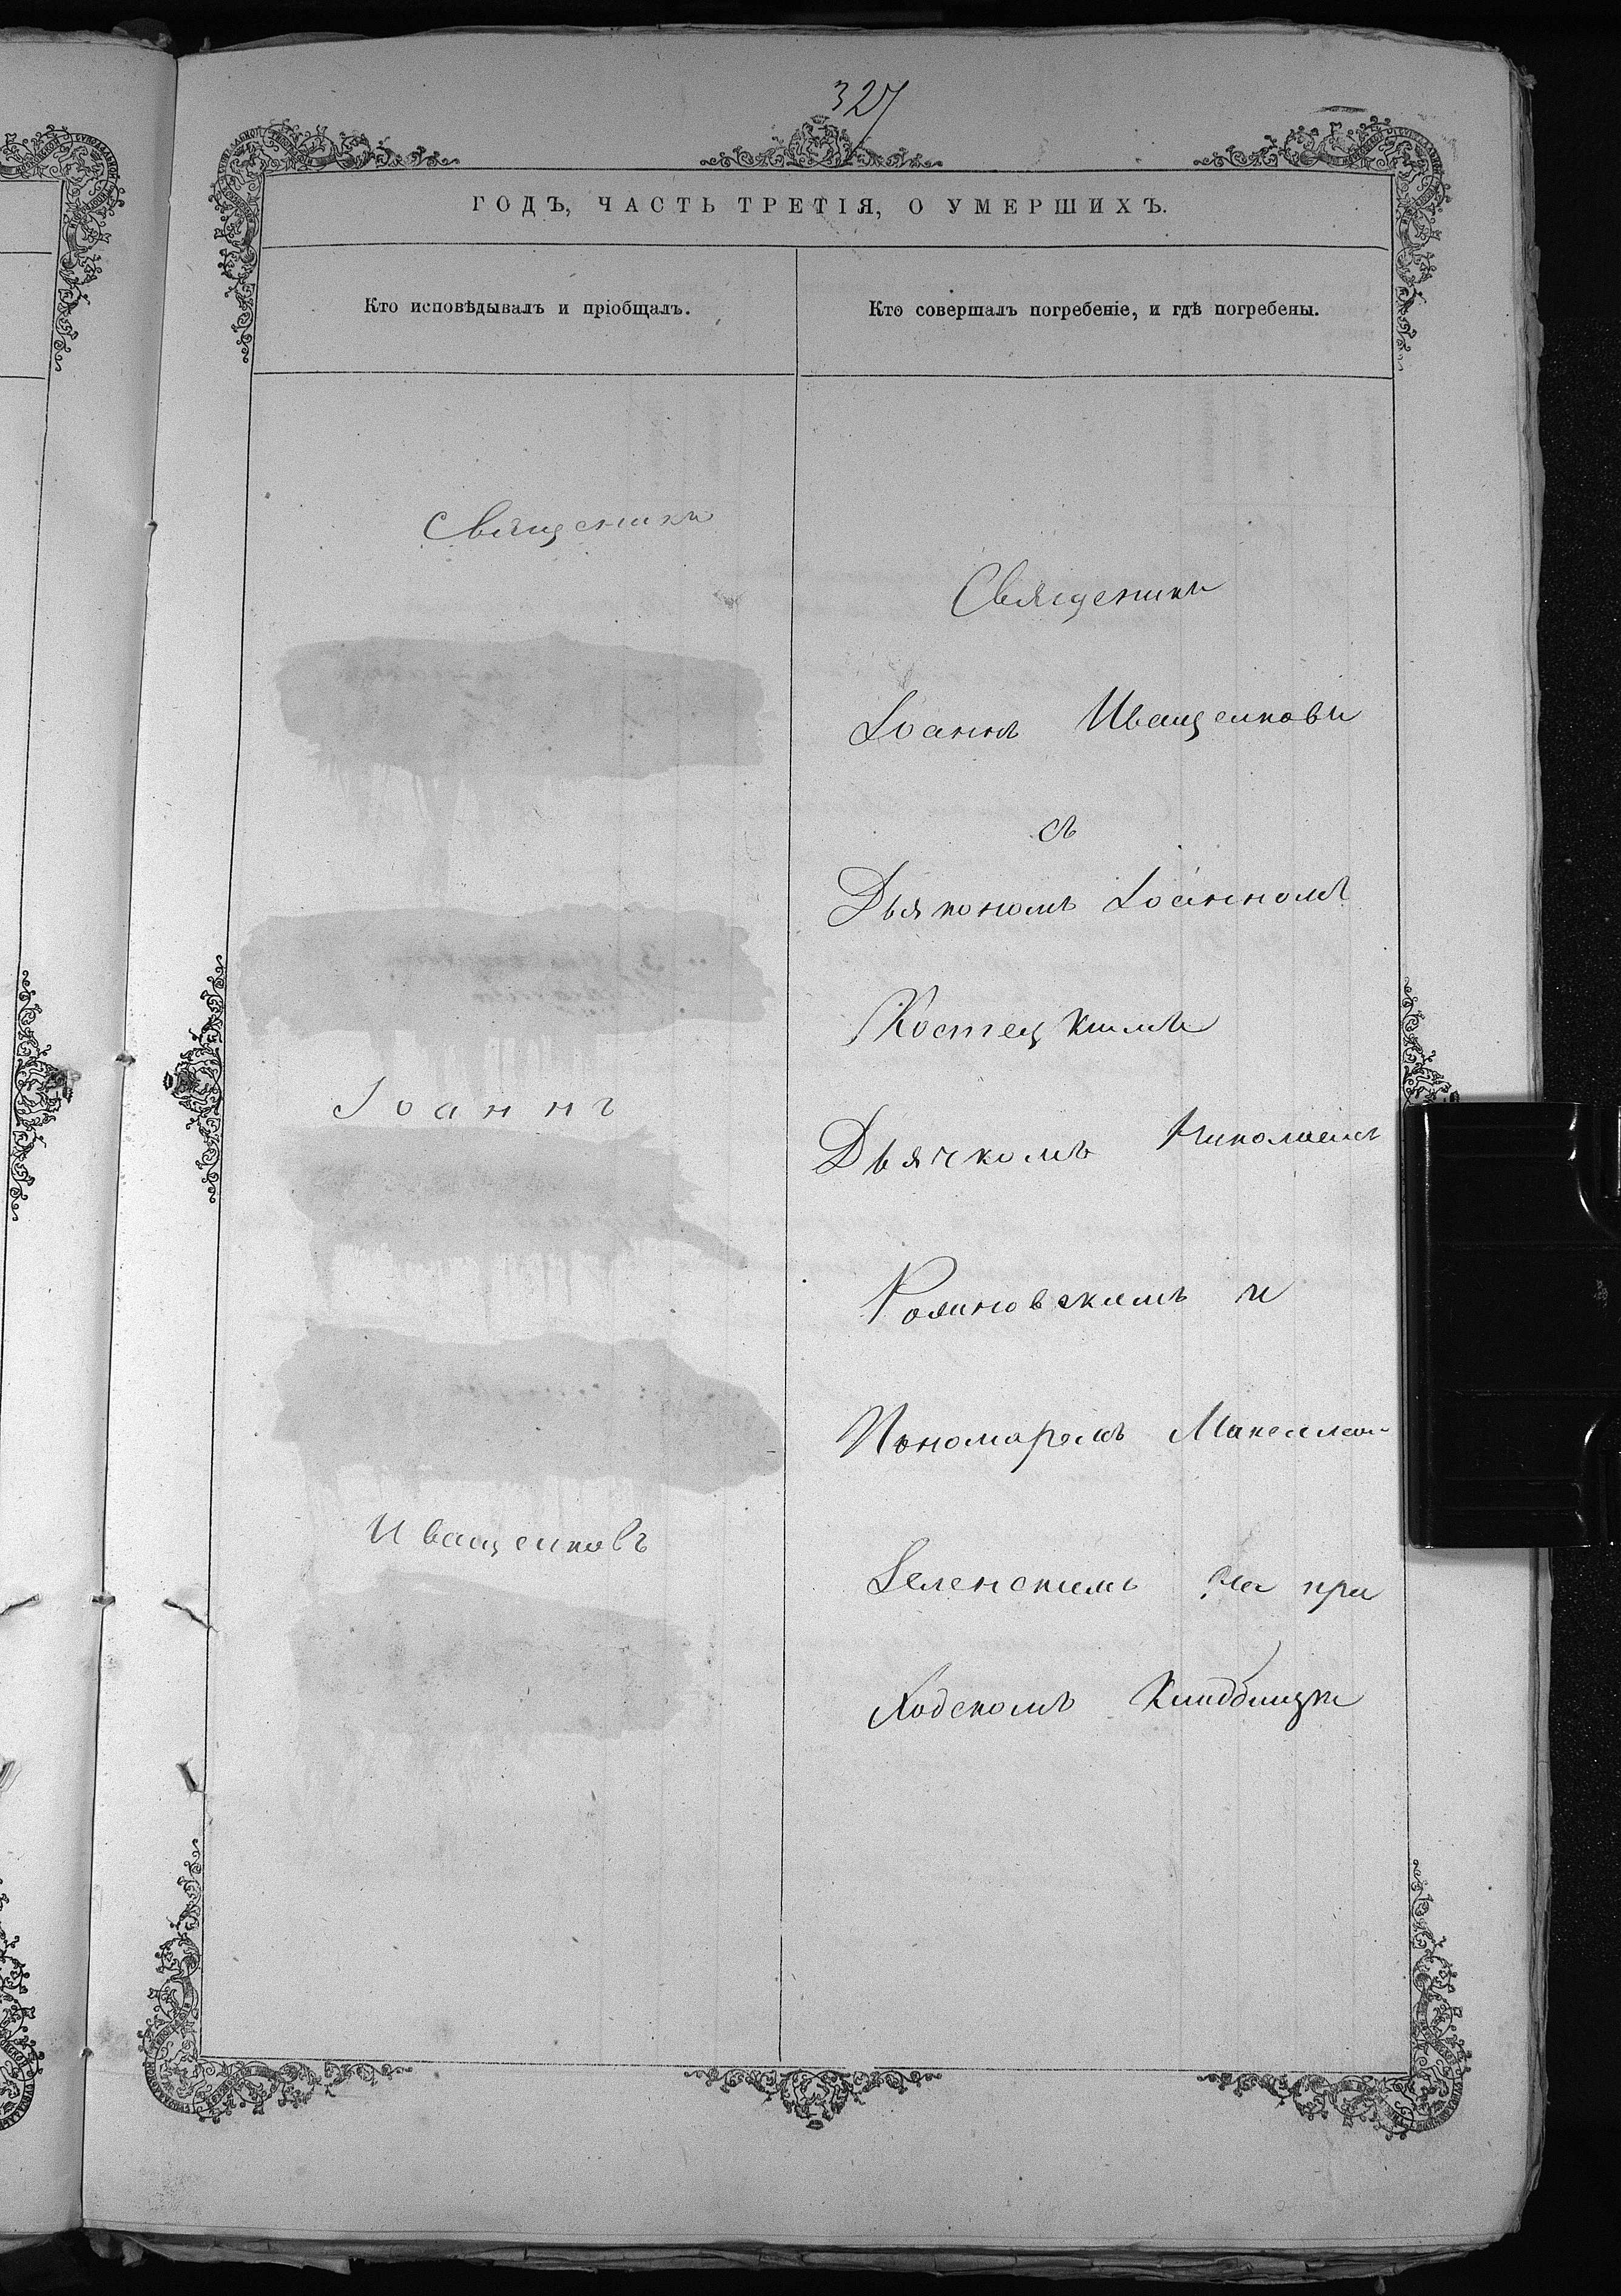 327
ГОДЪ, ЧАСТЬ ТРЕТІЯ, О УМЕРШИХЪ.
Кто исповѣдывалъ и пріобщалъ.
Кто совершалъ погребеніе, и гдѣ погребены.
Священикъ
Іоаннъ
Иващенковъ
Священикъ
Іоаннъ Иващенковъ
съ
Дьякономъ Іоанномъ
Костецкимъ
Дьячкомъ Николаемъ
и
Пономаремъ
Зеленскимъ На при
ходскомъ Кладбищѣ